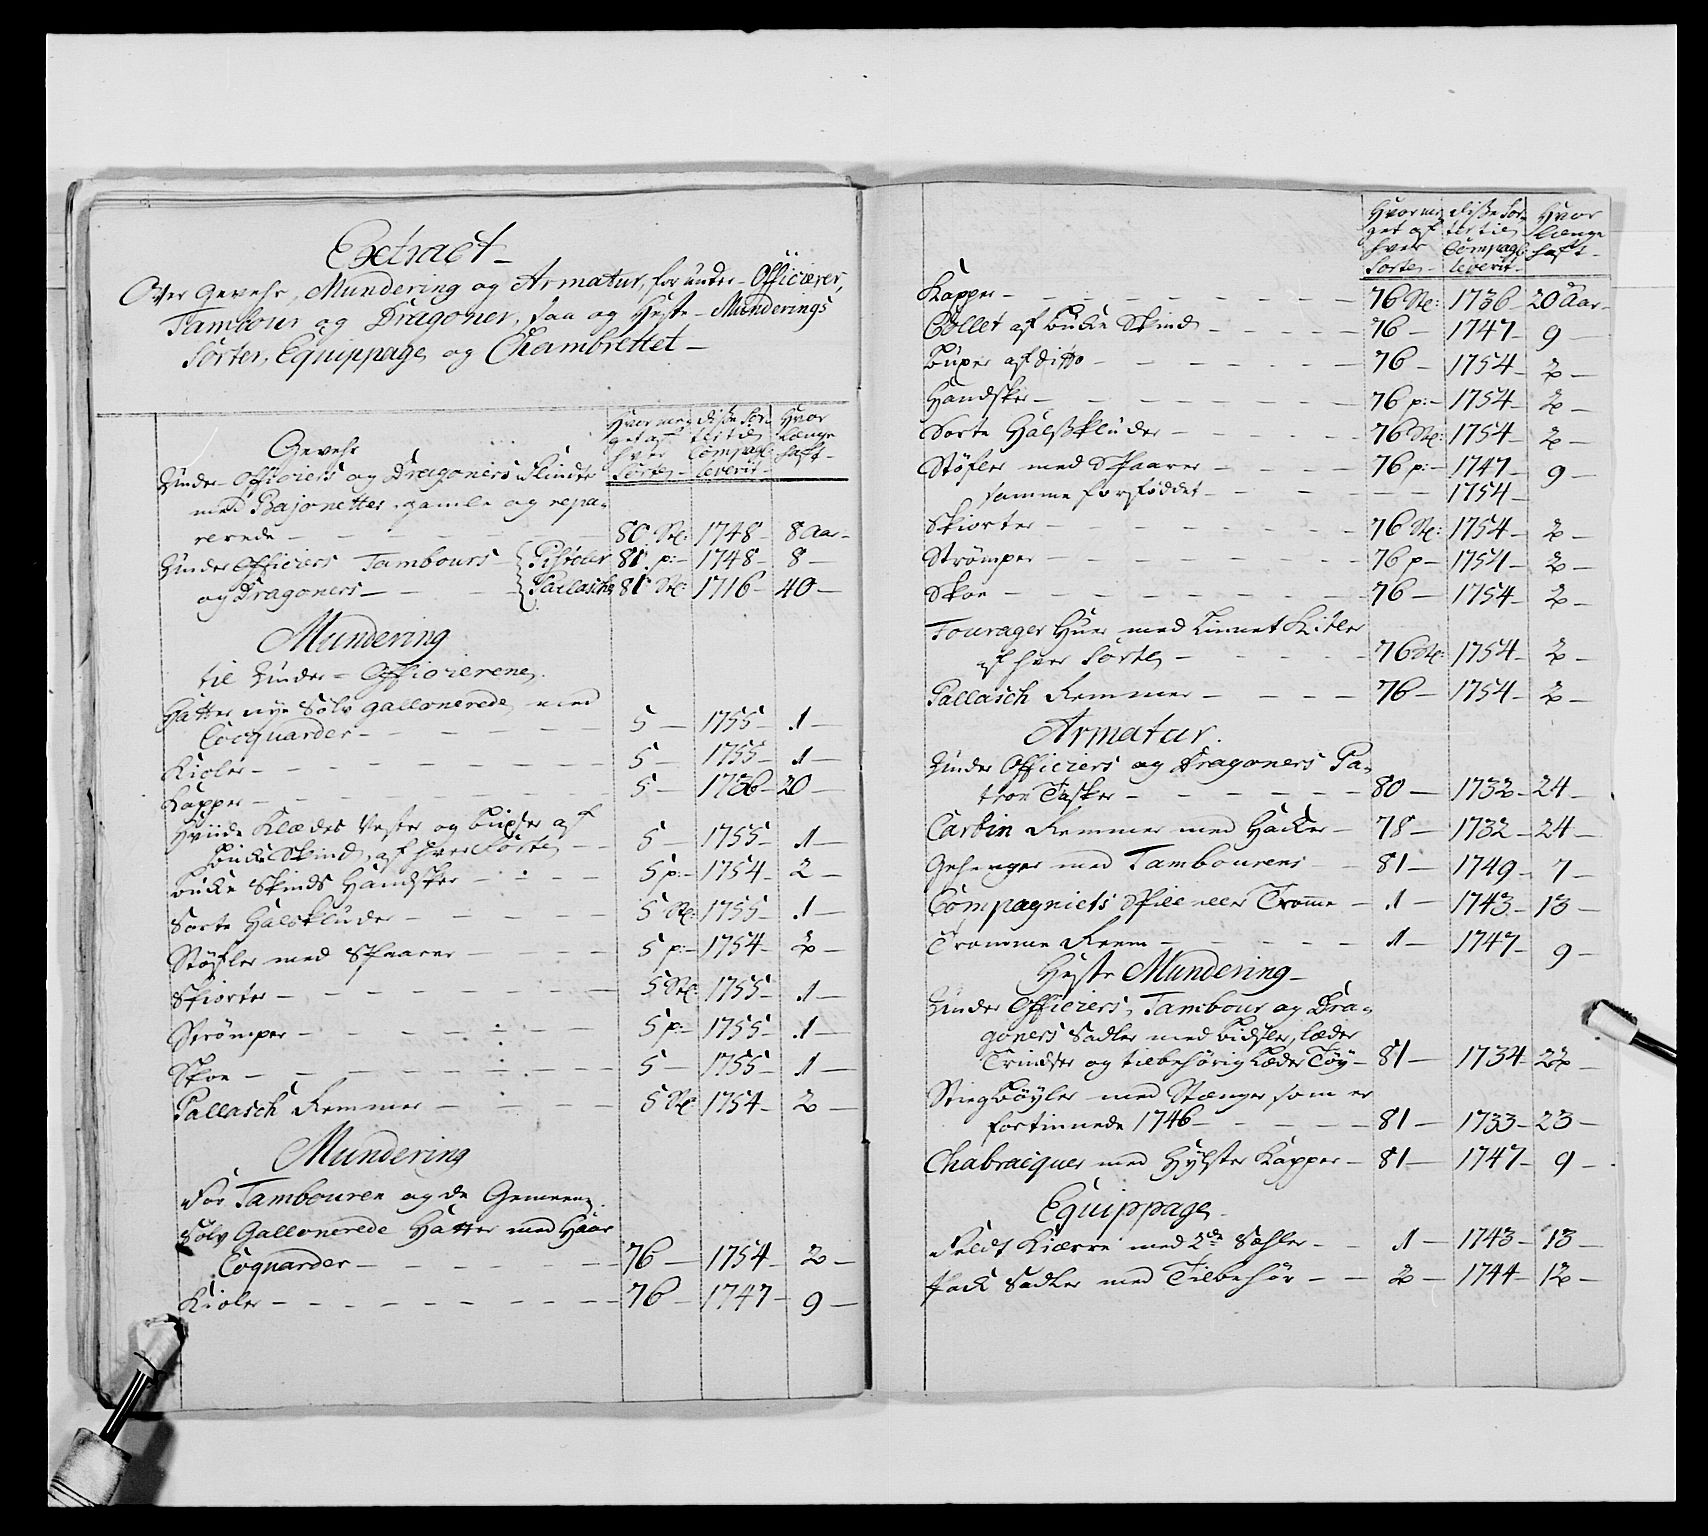 Extract
Over Gevehr, Mundering og Armatur, for under-Officerer,
Tambour og Dragoner, saa og Heste-Munderings
Sorter, Equippage og Chambrettet
Hvor me- get af hver Sorte
disse Sor- ter til Compagt: leverit
Hvor længe haft
Gevehr
Under-Officiers og Dragoners Flinter
med Bajonetter, gamle og repa-
rerede 80 St: 1748 8 Aar
Under Officiers Tambours Pistoler 81 p: 1748 8
og Dragoners Pallascher 81 St: 1716 40
Mundering
til Under-Officiererne
Hatter nye Sølv gallonerede med
Cocquarder 5 1755 1
Kioler 5 1755 1
Kapper 5 1736 20
Hviide Klædes Vester og buxser af
bukke Skind af hver Sorte 5 1755 1
bukke Skinds Handsker 5 p: 1754 2
Sorte Halskluder 5 St: 1755 1
Støfler med Spaarer 5 p: 1754 2
Skiorter 5 St: 1755 1
Strømper 5 p: 1755 1
Skoe 5 1755 1
Pallasch Remmer 5 St: 1754 2
Mundering
for Tambouren og de Gemeene
Sølv Gallonerede Hatter med Haar
Coquarder 76 1754 2
Kioler 76 1747 9
Hvor me- get af hver Sorte
disse Sor- ter til Compagt: leverit
Hvor længe haft
Kapper 76 St: 1736 20 Aar
Collet af bukke Skind 76 1747 9
buxer af ditto 76 1754 2
Handsker 76 p: 1754 2
Sorte Halskluder 76 St: 1754 2
Støfler med Spaarer 76 p: 1747 9
samme forføddet 1754
Skiorter 76 St: 1754 2
Strømper 76 p 1754 2
Skoe 76 1754 2
Fourager Huer med Linnet Kitler
af hver Sorte 76 St: 1754 2
Pallasch Remmer 76 1754 2
Armatur
Under Officiers og Dragoners Pa-
tron Tasker 80 1732 24
Carbin Remmer med Hacker 78 1732 24
Gehenger med Tambourens 81 1749 7
Compagniets Spill eller Tromme 1 1743 13
Tromme Reem 1 1747 9
Heste Mundering
Under Officiers, Tambour og Dra-
goners Sadler med bidsler, læder
Trindser og tilbehørig Læder Tøy 81 1734 22
Stiegbøyler med Stænger som er
fortinnede 1746 81 1733 23
Chabracquer med Hylster Kapper 81 1747 9
Equippage
Feldt Kiærre med 2de Sæhler 1 1743 13
Pack Sadler med Tilbehør 2 1744 12